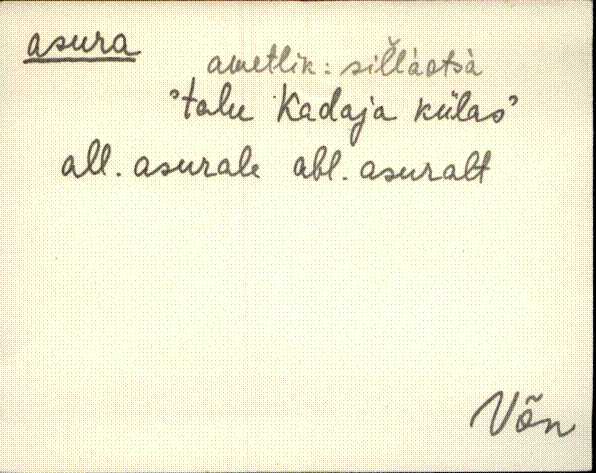 asura
ametlik: sil̆làotsà
'talu Kadaja külas'
all. asurale abl. asuralt
Võn